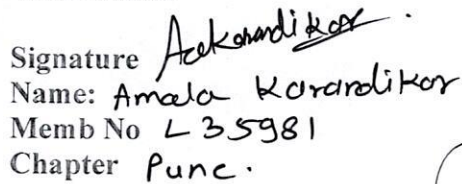 Signature Aakarandikar.
Name: Amala Karandikar
Memb No L35981
Chapter Pune.